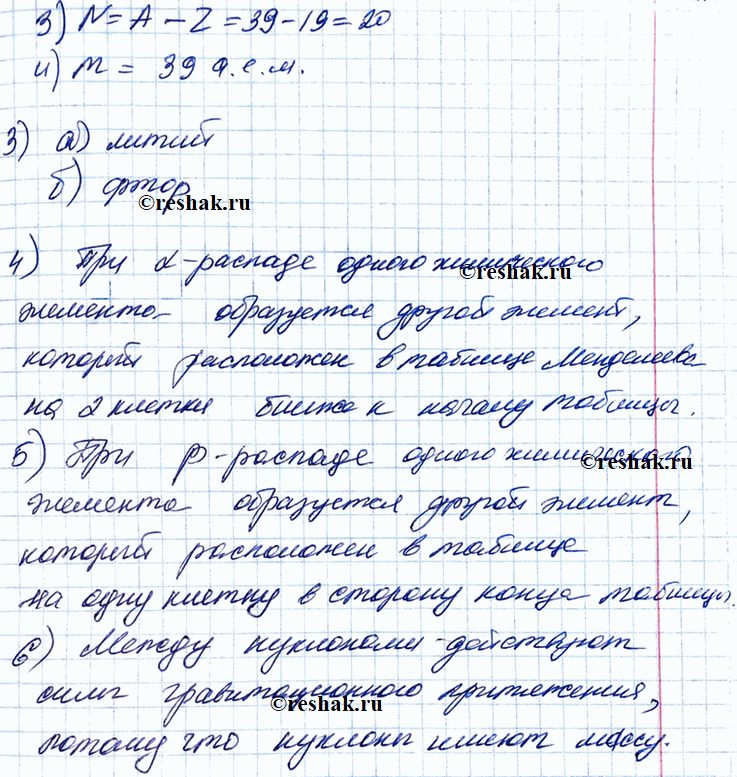 3) N = A - Z = 39 - 19 = 20
4) m = 39 а.е.м.
3) а) литий
б) фтор
©reshak.ru
4) При α-распаде одного химического
©reshak.ru
элемента образуется другой элемент,
который расположен в таблице Менделеева
на 2 клетки ближе к началу таблицы.
5) При β-распаде одного химической
©reshak.ru
элемента образуется другой элемент,
который расположен в таблице
на одну клетку в сторону конца таблицы.
6) Между нуклонами действуют
силы гравитационного притяжения,
©reshak.ru
потому что нуклоны имеют массу.